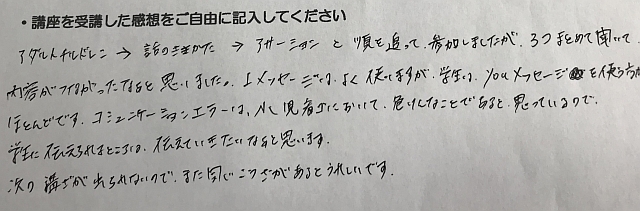 ・講座を受講した感想をご自由に記入してください
アダルトチルドレン → 話のききかた → アサーション と 順を追って、参加しましたが、3つまとめて聞いて、
内容がつながったなあと思いました。Iメッセージは、よく使いますが、学生は、youメッセージを使う方が
ほとんどです。コミュニケーションエラーは、小児看護において、危けんなことであると、思っているので、
学生に伝えられるところは、伝えていきたいなあと思います。
次の講ざが出られないので、また同じこうざがあるとうれしいです。